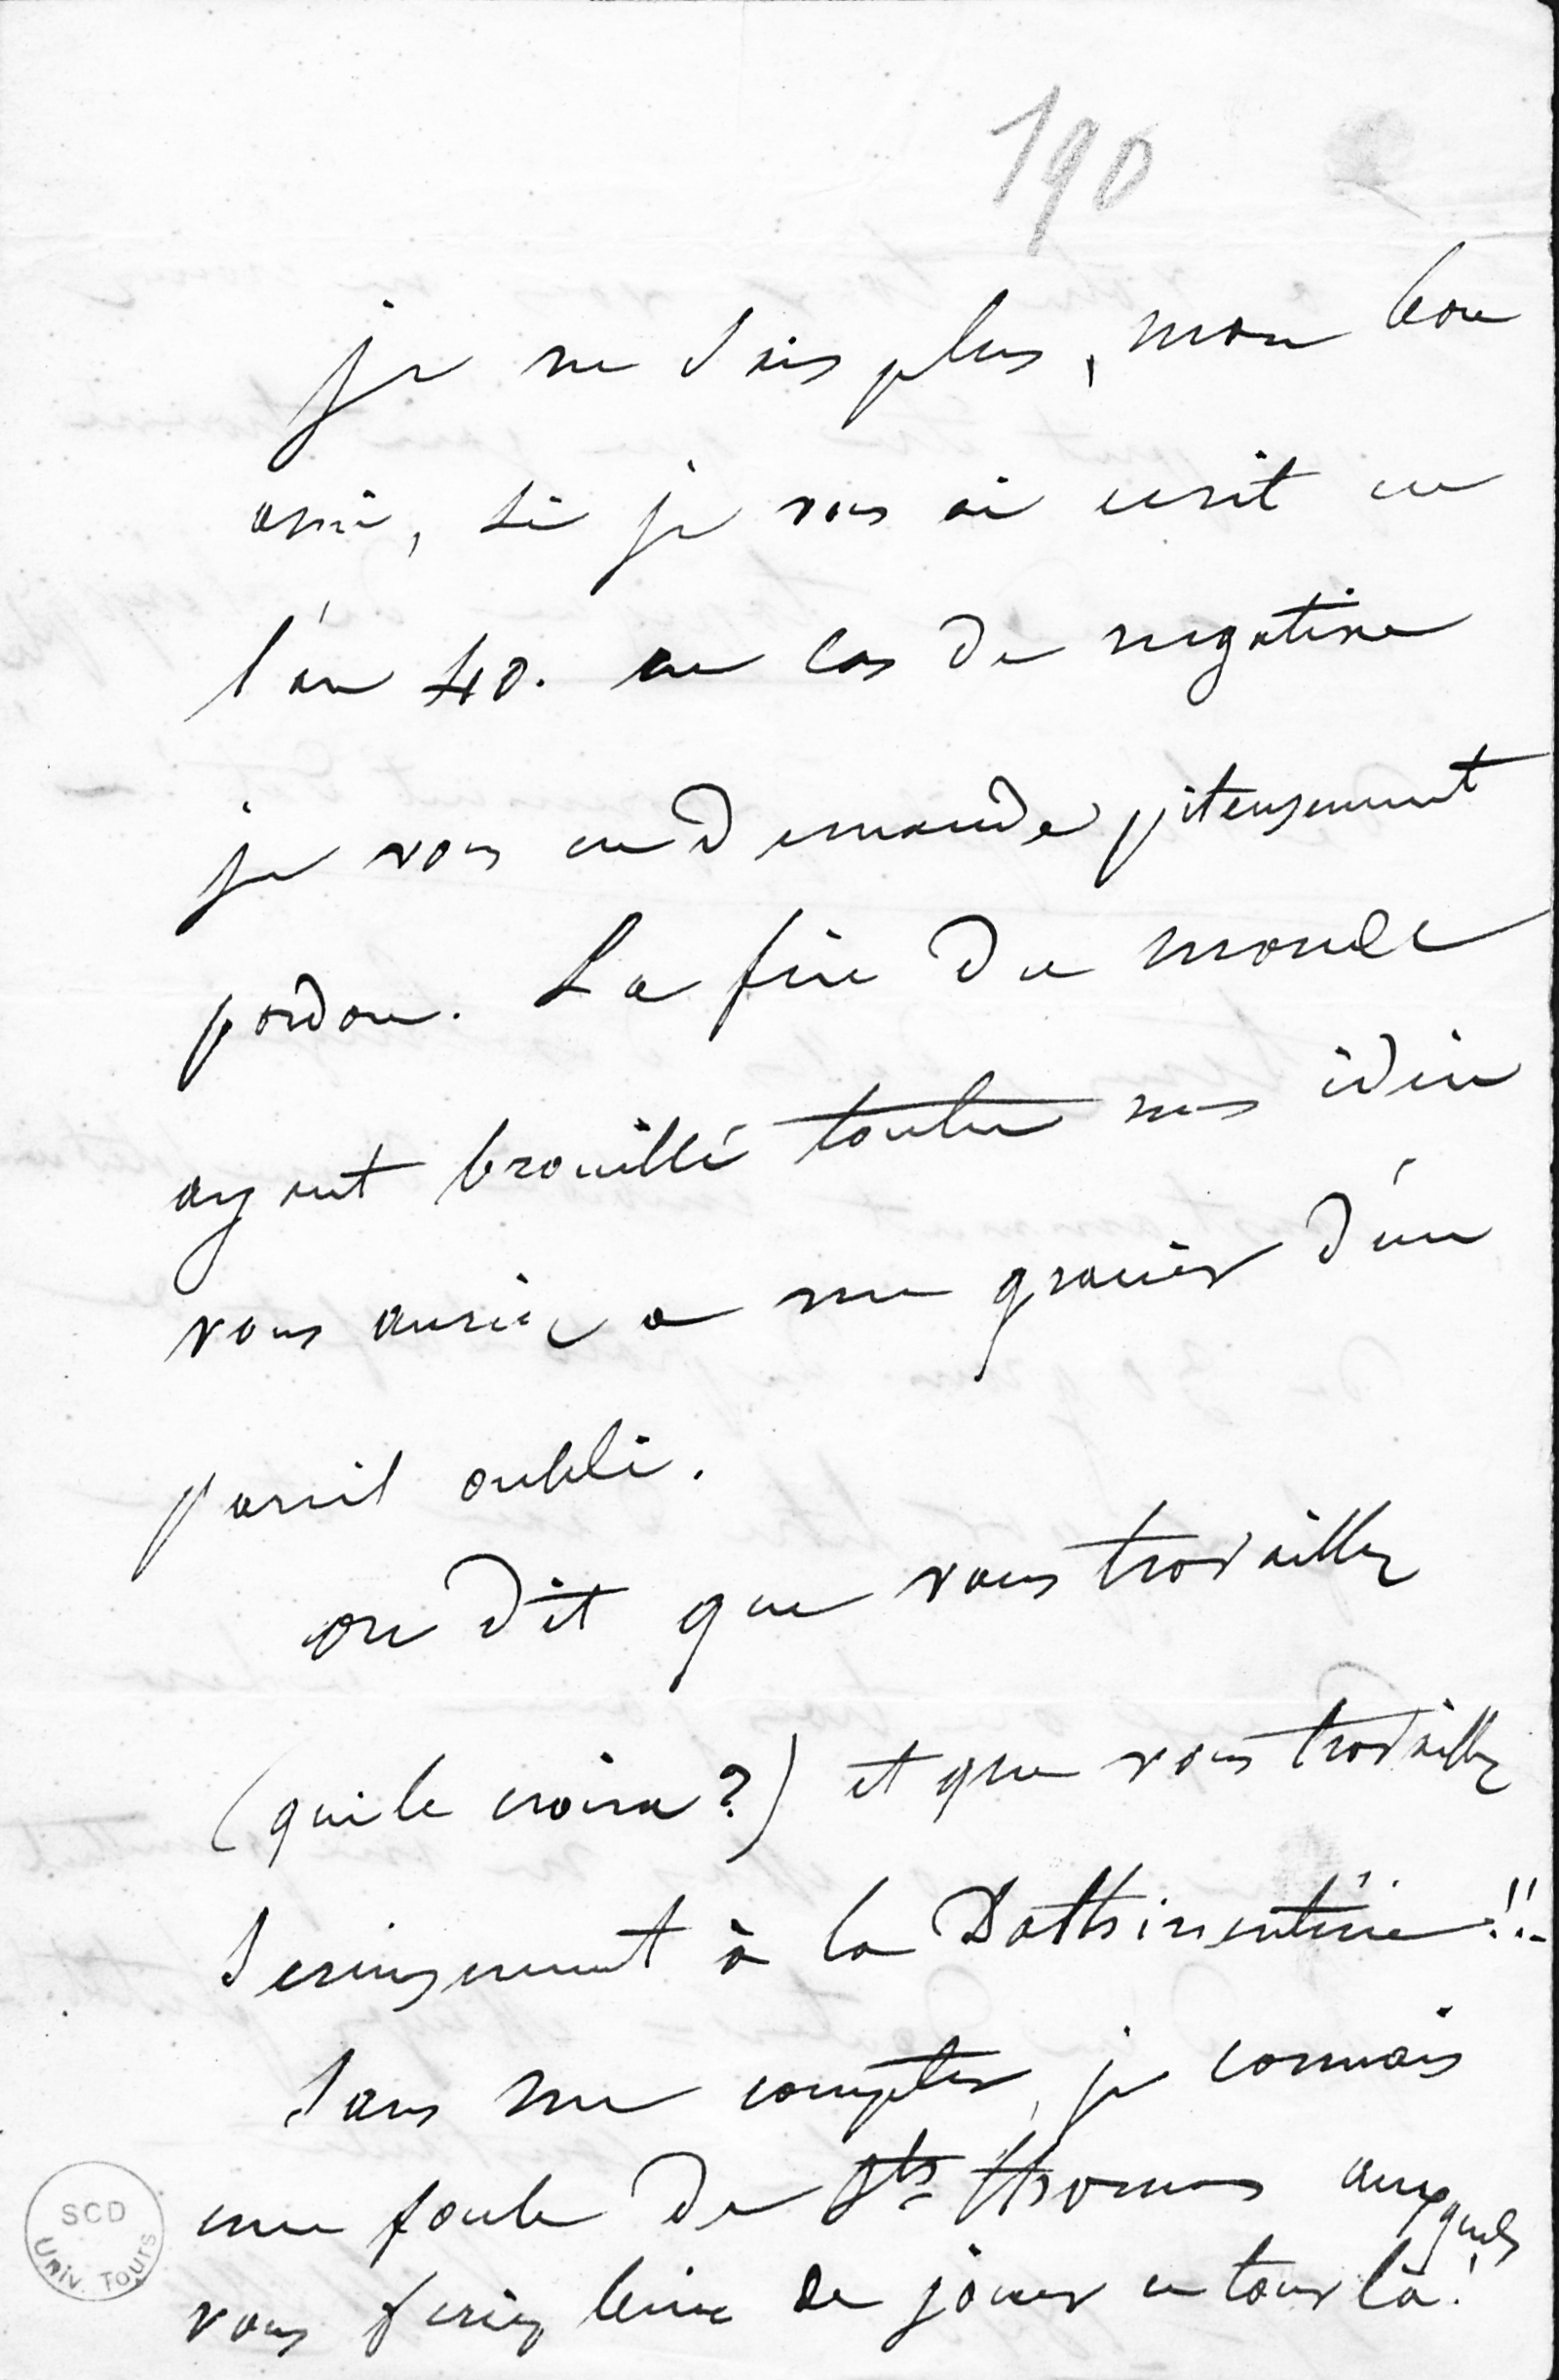 190
je ne sais plus, mon bon
ami, si je vous ai ecrit en
l'an 40. au cas de negative
je vous en demande piteusement
pardon. La fin du monde
ayant brouillé toutes nos idées
vous auriez a me gracier d'un
pareil oubli.
on dit que vous travaillez
(qui le croira?) et que vous travaillez
serieusement à la
sans me compter, je connais
une foule de Sts thomas auxquels
vous feriez bien de jouer ce tour là!
SCD
Univ. Tours